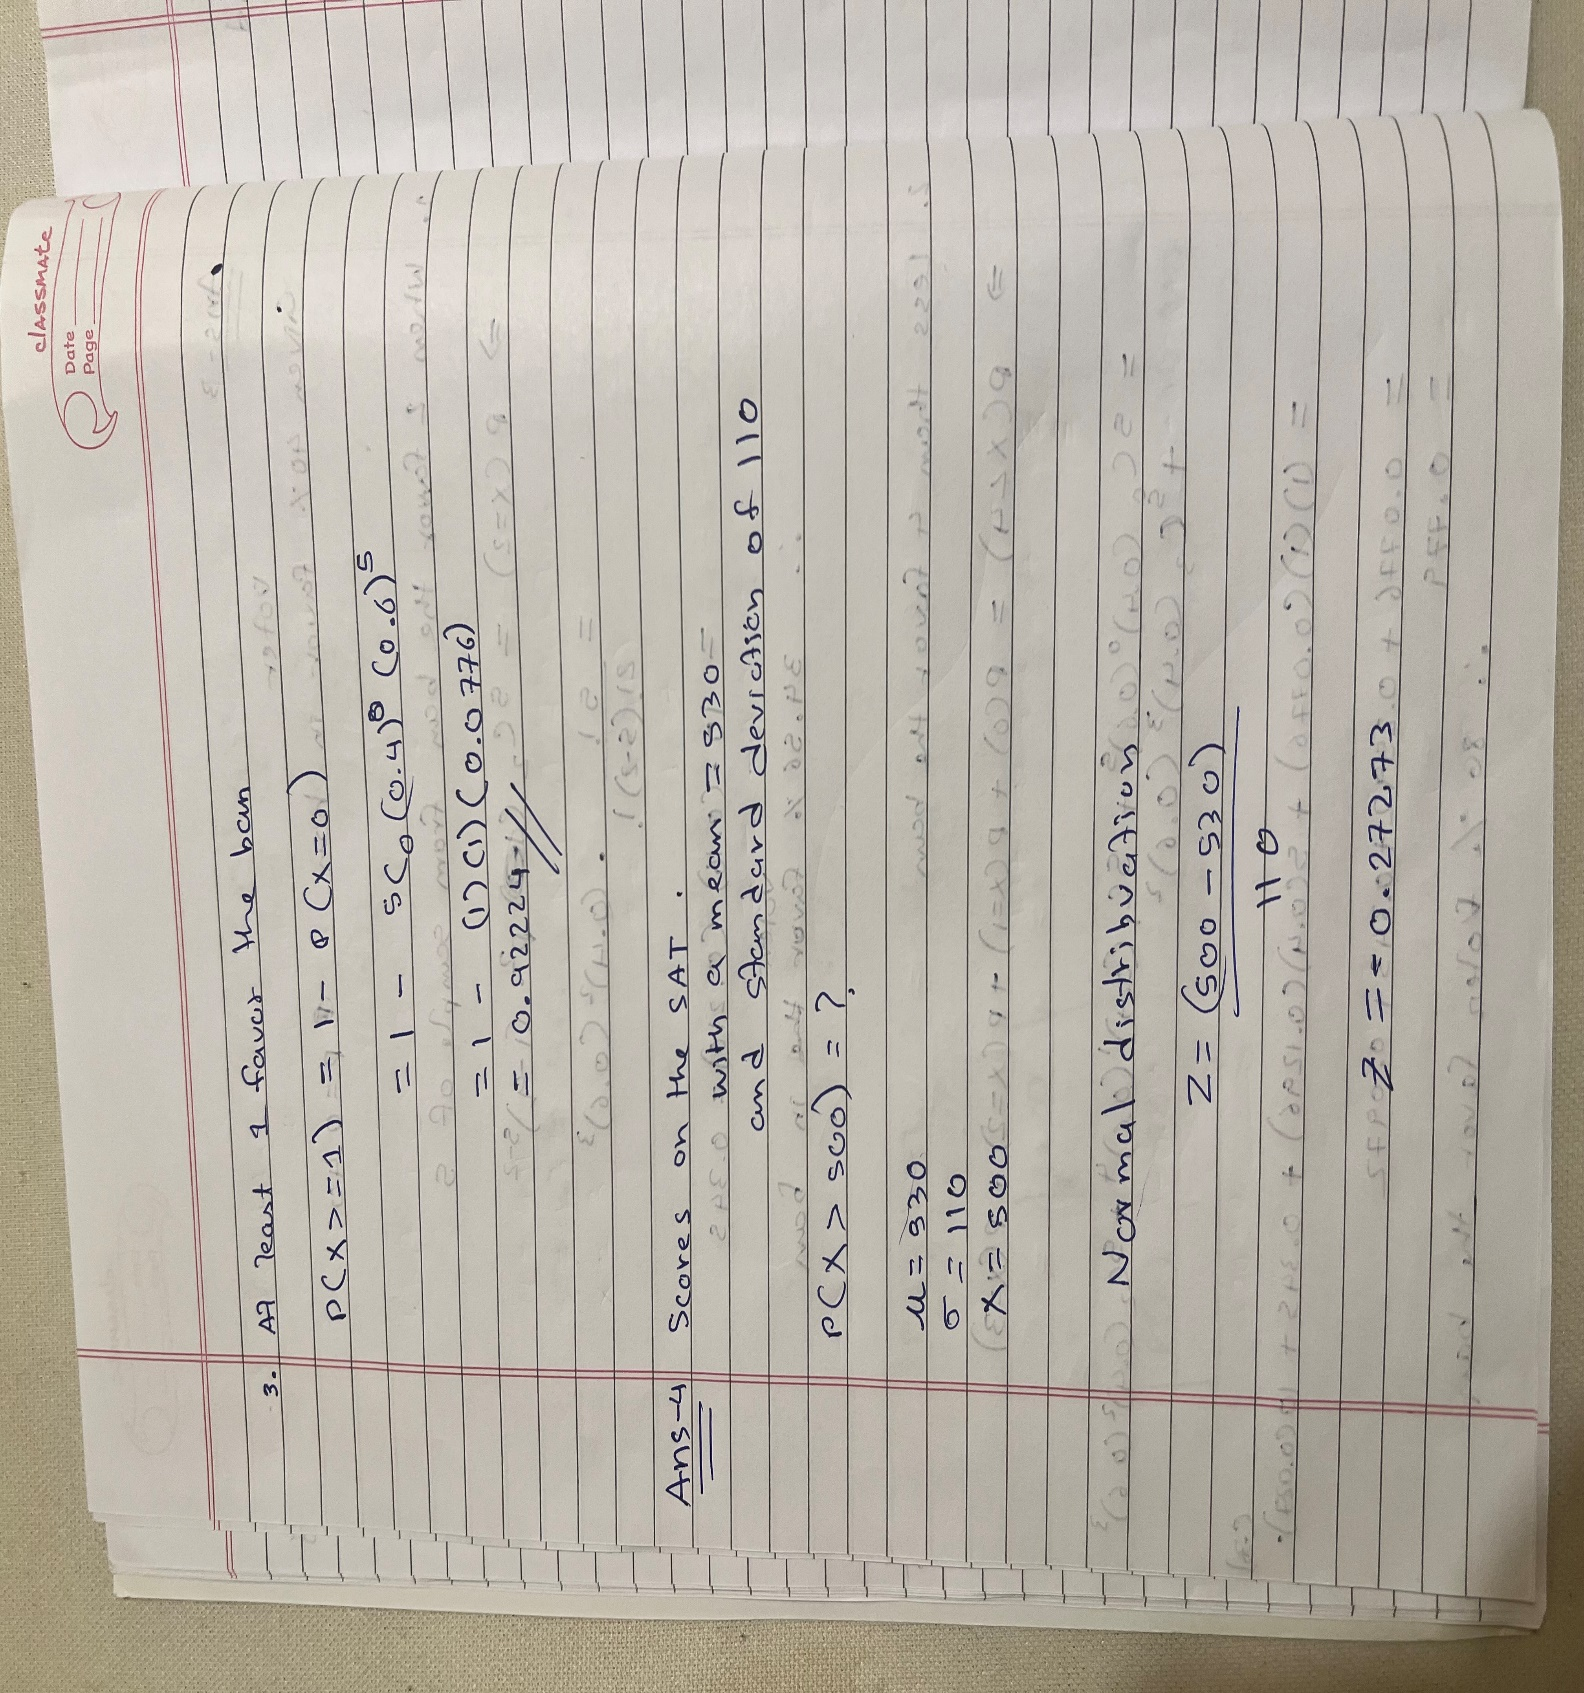 classmate
Date
Page
3. At least 1 favor the ban
P(X>=1) = 1 - P(X=0)
= 1 - 5C₀(0.4)⁰ (0.6)⁵
= 1 - (1)(1)(0.0776)
= 0.92224
Ans-4 Scores on the SAT.
with a mean = 530
and standard deviation of 110
P(X > 500) = ?
μ = 530
σ = 110
X = 500
Normal distribuation
Z = (500 - 530)
110
Z = - 0.27273